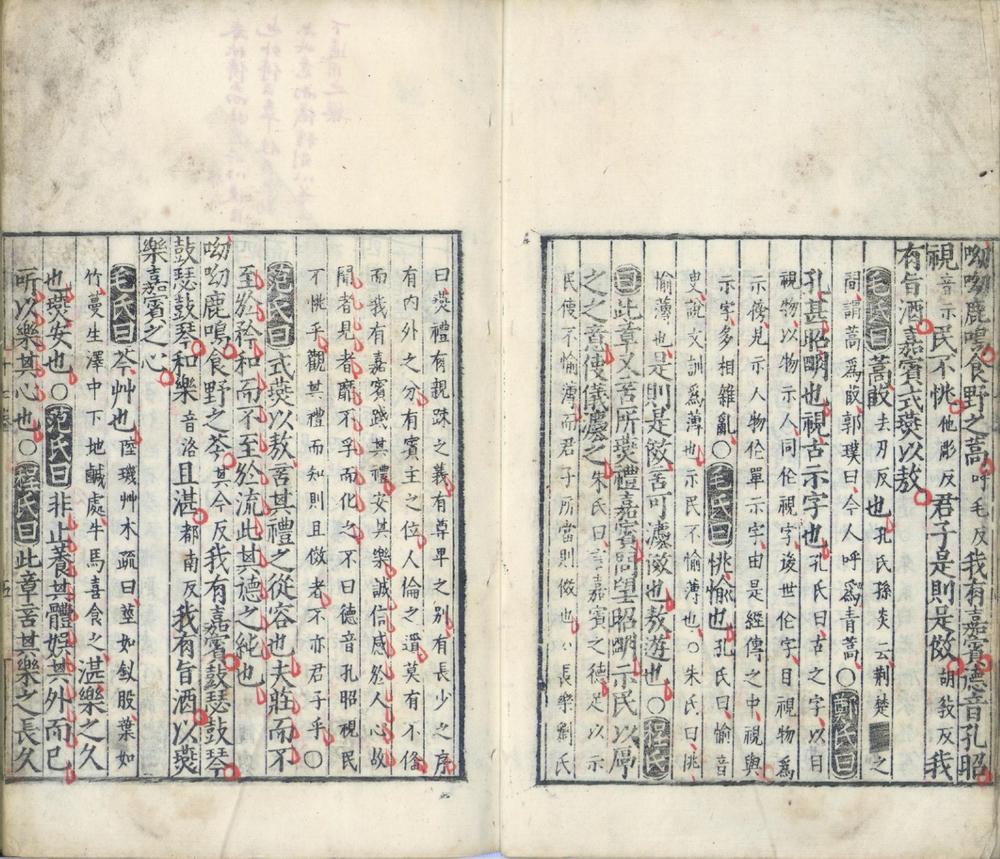 呦呦鹿鳴食野之蒿呼毛反我有嘉賓德音孔昭
視音示民不恌他彫反君子是則是傚胡教反我
有旨酒嘉賓式燕以敖
毛氏曰蒿菣去刃反也孔氏孫炎云荆楚之
間謂蒿爲菣郭璞曰今人呼爲青蒿○鄭氏曰
孔甚昭明也視古示字也孔氏曰古之字以目
視物以物示人同作視字後世作字目視物爲
示傍見示人物作單示字由是經傳之中視與
示字多相雜亂○毛氏曰恌愉也孔氏曰愉音
叟說文訓爲薄也示民不愉薄也○朱氏曰恌
愉薄也是則是傚言可灋傚也敖遊也○程氏
曰此章又言所燕禮嘉賓問望昭明示民以孚
之之音使儀灋之朱氏曰言嘉賓之德足以示
民使不愉薄而君子所當則傚也○長樂劉氏
曰燕禮有親踈之義有尊卑之别有長少之序
有内外之分有賓主之位人倫之道莫有不脩
而我有嘉賓踐其禮安其樂誠信感然人心故
聞者見者靡不孚而化之不曰德音孔昭視民
不恌乎觀其禮而知則且傚者不亦君子乎○
范氏曰式燕以敖言其禮之從容也夫莊而不
至於矜和而不至於流此其德之純也
呦呦鹿鳴食野之芩其今反我有嘉賓鼓瑟鼓琴
鼓瑟鼓琴和樂音洛且湛都南反我有旨酒以燕
樂嘉賓之心
毛氏曰芩艸也陸璣艸木疏曰莖如釵股葉如
竹蔓生澤中下地鹹處牛馬喜食之湛樂之久
也燕安也○范氏曰非止養其體娱其外而已
所以樂其心也○程氏曰此章言其樂之長久